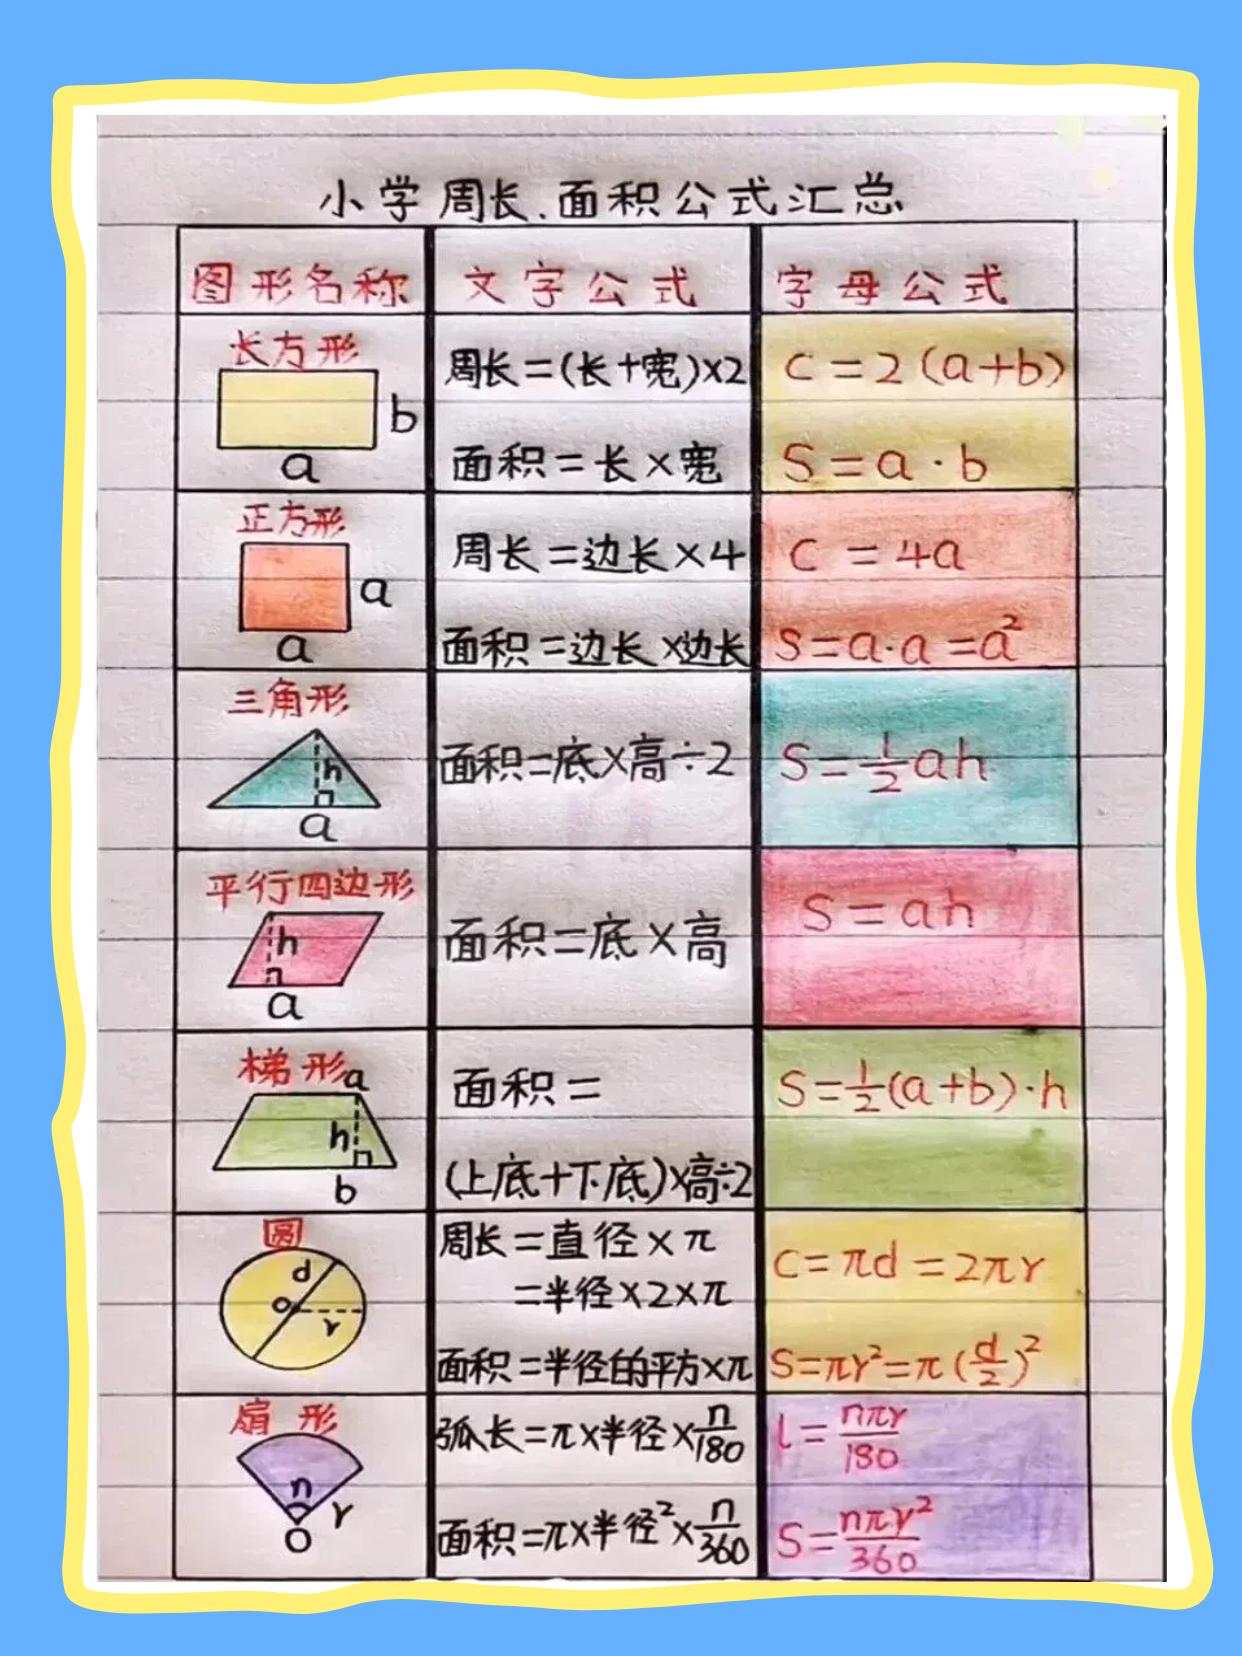 小学周长、面积公式汇总
图形名称 文字公式 字母公式
长方形
b
a
周长=(长+宽)×2
面积=长×宽
C=2(a+b)
S=a·b
正方形
a
a
周长=边长×4
面积=边长×边长
C=4a
S=a·a=a²
三角形
h
a
面积=底×高÷2
S=½ah
平行四边形
h
a
面积=底×高
S=ah
梯形 a
h
b
面积=
(上底+下底)×高÷2
S=½(a+b)·h
圆
d
O
r
周长=直径×π
=半径×2×π
面积=半径的平方×π
C=πd=2πr
S=πr²=π(d/2)²
扇形
n
r
O
弧长=π×半径×n/180
面积=π×半径²×n/360
l=nπr/180
S=nπr²/360